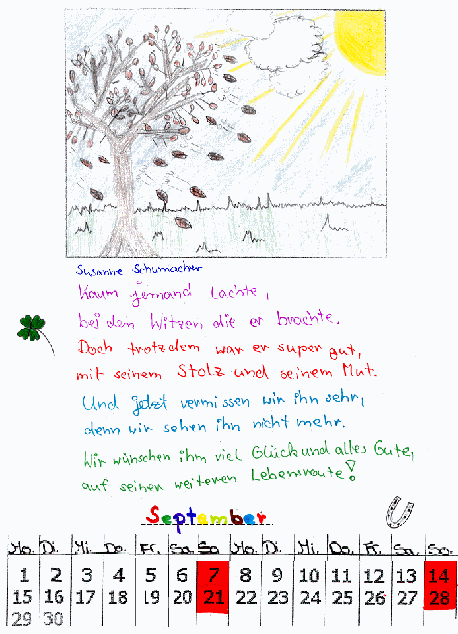 Susanne Schumacher
Kaum jemand lachte,
bei den Witzen die er brachte.
Doch trotzdem war er super gut,
mit seinem Stolz und seinem Mut.
Und jetzt vermissen wir ihn sehr,
denn wir sehen ihn nicht mehr.
Wir wünschen ihm viel Glück und alles Gute,
auf seiner weiteren Lebensroute!
September
Mo. Di. Mi. Do. Fr. Sa. So. Mo. Di. Mi. Do. Fr. Sa. So.
1 2 3 4 5 6 7 8 9 10 11 12 13 14
15 16 17 18 19 20 21 22 23 24 25 26 27 28
29 30